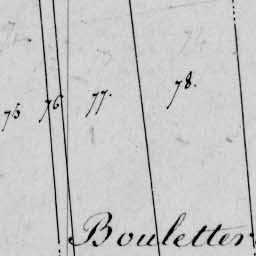 75 76 77. 78.
Bouletter